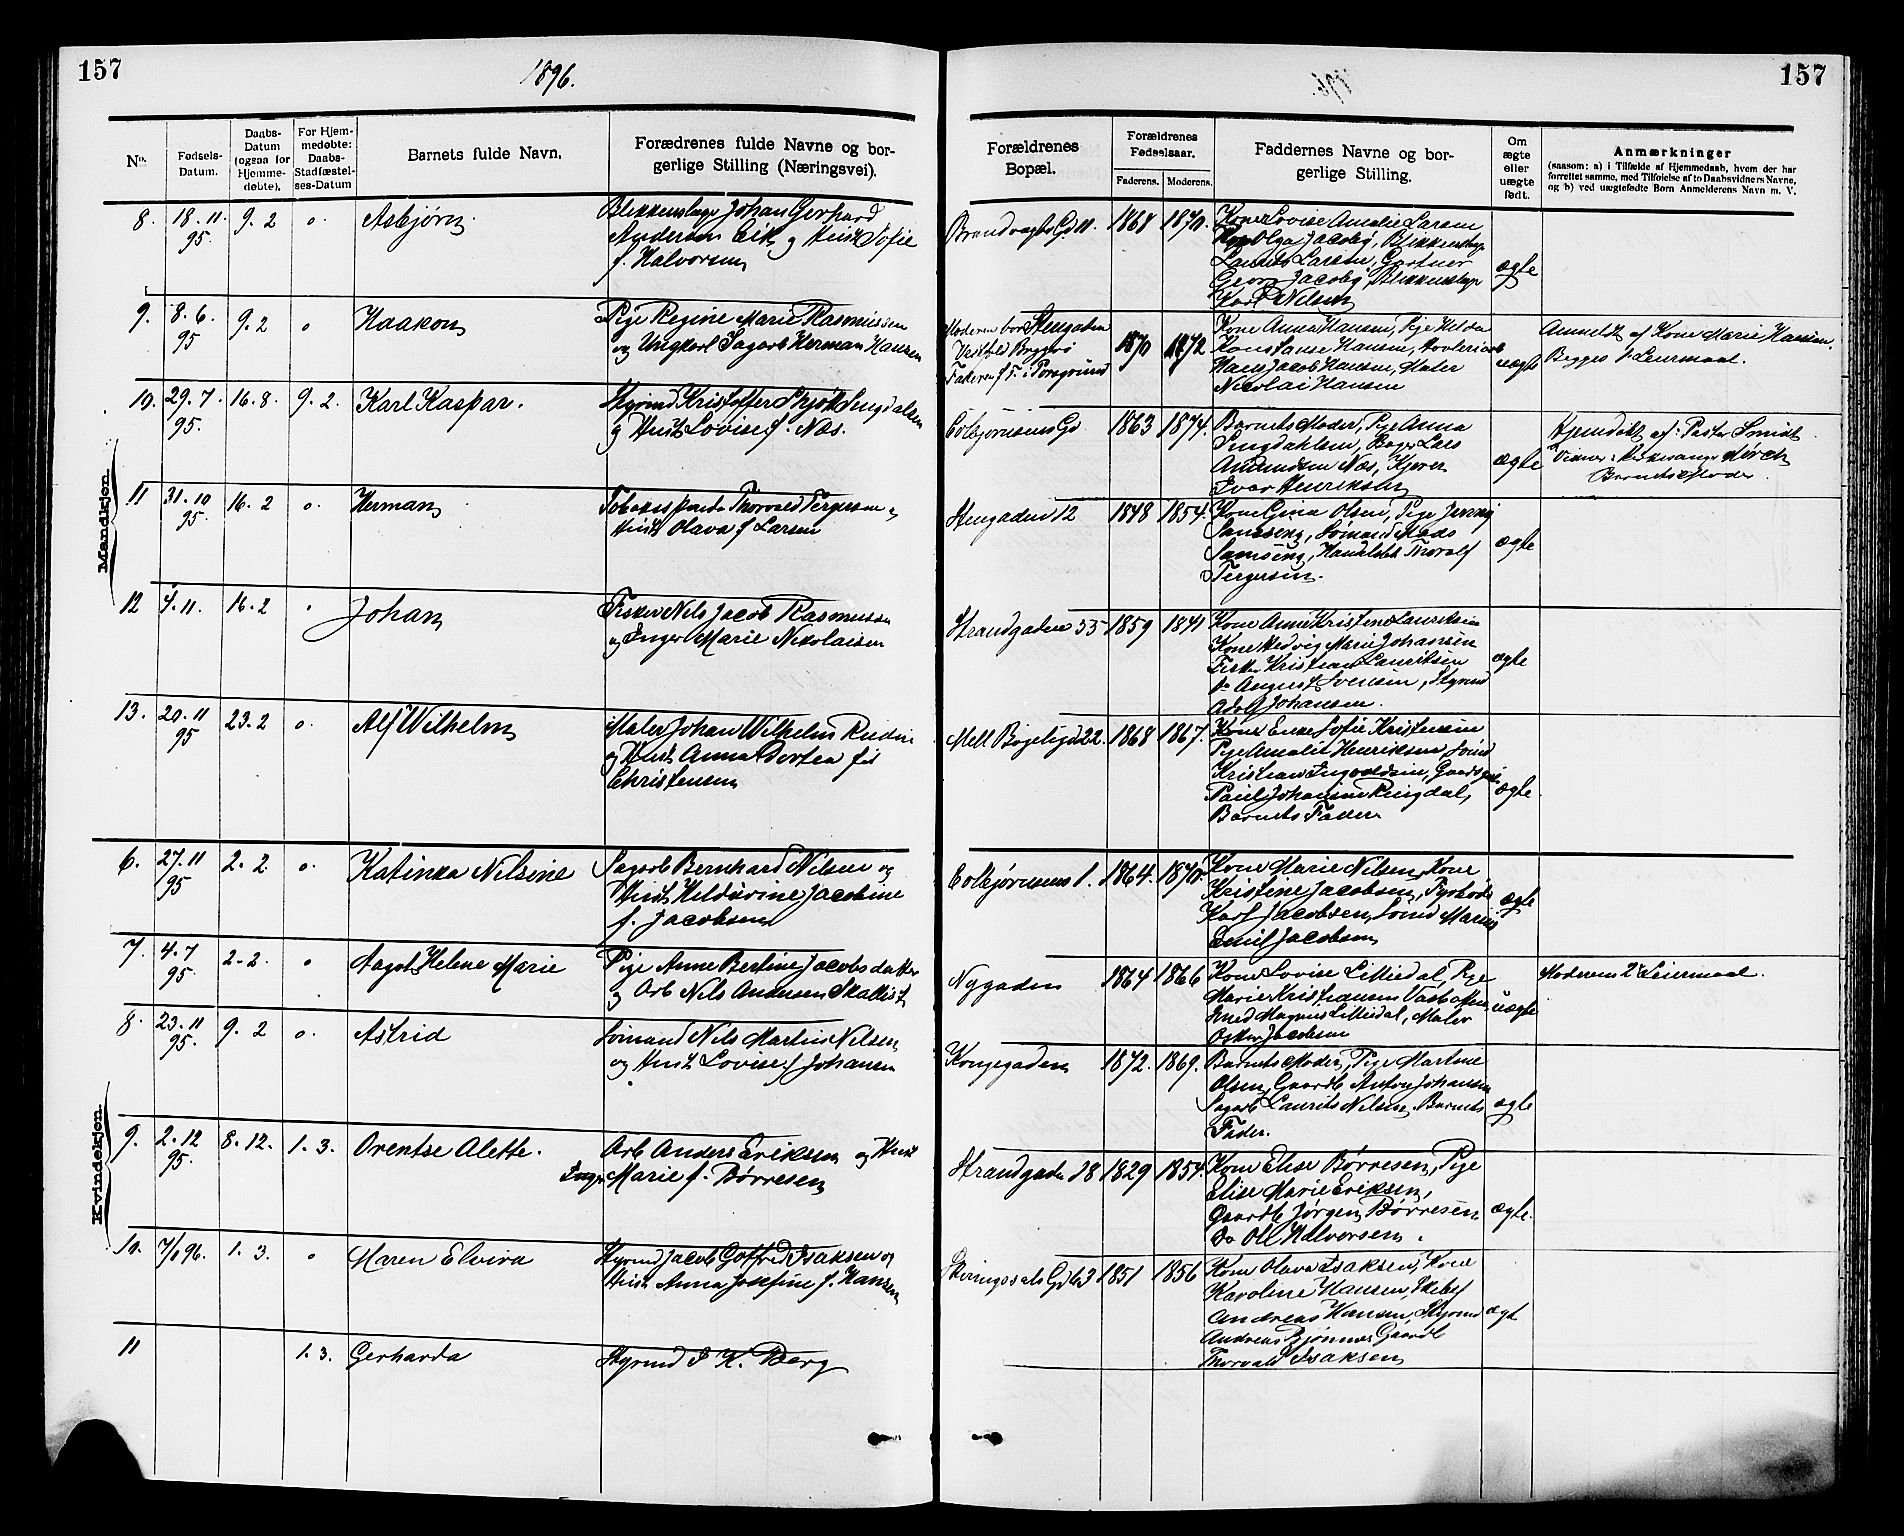 157
1896.
No.
Fødsels-
Datum.
Daabs-
Datum
(ogsaa for
Hjemme-
døbte).
For Hjem-
medøbte:
Daabs-
Stadfæstel-
ses-Datum
Barnets fulde Navn.
Forædrenes fulde Navne og bor-
gerlige Stilling (Næringsvei).
Mandkjøn
8. 18.11. 95. 9.2 o. Asbjørn
Blikkenslager Johan Gerhard
Andersen Eik og Hust Sofie
f. Halvorsen
9. 8.6. 95 9.2 o Haakon
Pige Regine Marie Rasmussen
og Ungkarl Sagarb Herman Hansen
10. 29.7. 95. 16.8. 9.2. Karl Kaspar.
Styrmd Kristoffer
g Hust Lovise f. Næs.
11 31.10 95. 16.2 o Herman
Thorvald Tergersen g
Hust Olava f Larsen
12 4.11. 16.2 " Johan
Fisker Nils Jacob Rasmussen
og Inger Marie Nikolaisen
13. 20.11 95 23.2 o. Alf Wilhelm
Maler Johan Wilhelm
og Hust Anna Dortea
Christensen
Kvindekjøn
6. 27.11 95 2.2. o. Katinka Nilsine
Sagarb Bernhard Nilsen og
Hust Jacobine
f. Jacobsen
7. 4.7 95. 2.2. o Aagot Helene Marie
Pige Anne Bertine Jacobsdatter
og Arb Nils Andersen
8. 23.11 95. 9.2 o. Astrid
Sømand Nils Martin Nilsen
og Hust Lovise f Johansen
9. 2.12 95. 8.12. 1.3. Orentse Alette.
Arb Anders Eriksen og Hust
Inger Marie f. Børresen
10. 7/1 96. 1.3. o Maren Elvira
Styrmd Jacob Gotfred Isaksen og
Hust Anna Josefine f. Hansen
11 1.3. Gerharda
Styrmd K. Berg
157
Forældrenes
Bopæl.
Forældrenes
Fødselsaar.
Faderens. Moderens.
Faddernes Navne og bor-
gerlige Stilling.
Om
ægte
eller
uægte
født.
Anmærkninger
(saasom: a) i Tilfælde af Hjemmedaab, hvem der har
forrettet samme, med Tilføielse af to Daabsvidners Navne,
og b) ved uægtefødte Børn Anmelderens Navn m. V.
Brandvagts Gd 11. 1868 1870.
Kone Lovise Amalie Larsen
Kone Olga Jacoby, Blikkenslager
Laurits Larsen, Gartner
Georg Jacoby, Blikkenslager
Karl Nilsen
ægte
Moderen bor Stengaden
Faderen f. T. i Porsgrund
1870 1872
Kone Anna Hansen, Pige Hilda
Konstanse Hansen,
Hans Jacob Hansen, Maler
Nicolai Hansen
uægte
Anmeldt af Kone Marie Hansen.
Begges 1 Leiermaal.
Colbjørnsens Gd 1863 1874.
Barnets Moder, Pige Anna
Lars
Amundsen Næs,
Ivar Henriksen
ægte
Hjemdøbt af: Pastor Smidt
Vidner: Mørch
Barnets Moder
Stengaden 12 1848 1854.
Kone Gina Olsen, Pige Jenny
Sømand Mads
Samsing, Thoralf
Tergersen.
ægte
Strandgaden 55 1859 1841
Kone Anne Kristine Lauritsen
Kone Hedvig Marie Johansen
Fisker Kristian Lauritsen
do August Svensen, Styrmd
Adolf Johansen.
ægte
Mell 22. 1868 1867.
Kone Sofie Kristensen
Pige Amalie Henriksen, Sømd
Kristian Ingvaldsen,
Paul Johansen Ringdal,
Barnets Fader
ægte.
Colbjørnsens 1. 1864. 1870.
Kone Marie Nilsen, Kone
Kristine Jacobsen,
Karl Jacobsen, Sømd Marius
Emil Jacobsen
ægte
Nygaden 1864 1866
Kone Lovise Lilliedal, Pige
Marie Kristiansen
Smed Magnus Lilliedal, Maler
Oskar Jacobsen
uægte
Moderens 2 Leiermaal.
Kongegaden 1872. 1869.
Barnets Moder, Pige Martine
Olsen, Gaardb Anton Johansen
Sagarb Laurits Nilsen, Barnets
Fader.
ægte
Strandgaden 28 1829 1854.
Kone Elise Børresen, Pige
Elise Marie Eriksen,
Gaardb Jørgen Børresen
do Ole Halvorsen.
ægte.
Skiringssals Gd 63 1851 1856
Kone Olava Isaksen, Kone
Karoline Hansen,
Andreas Hansen, Styrmd
Andreas Bjønnes, Gaardb
Thorvald Isaksen
ægt